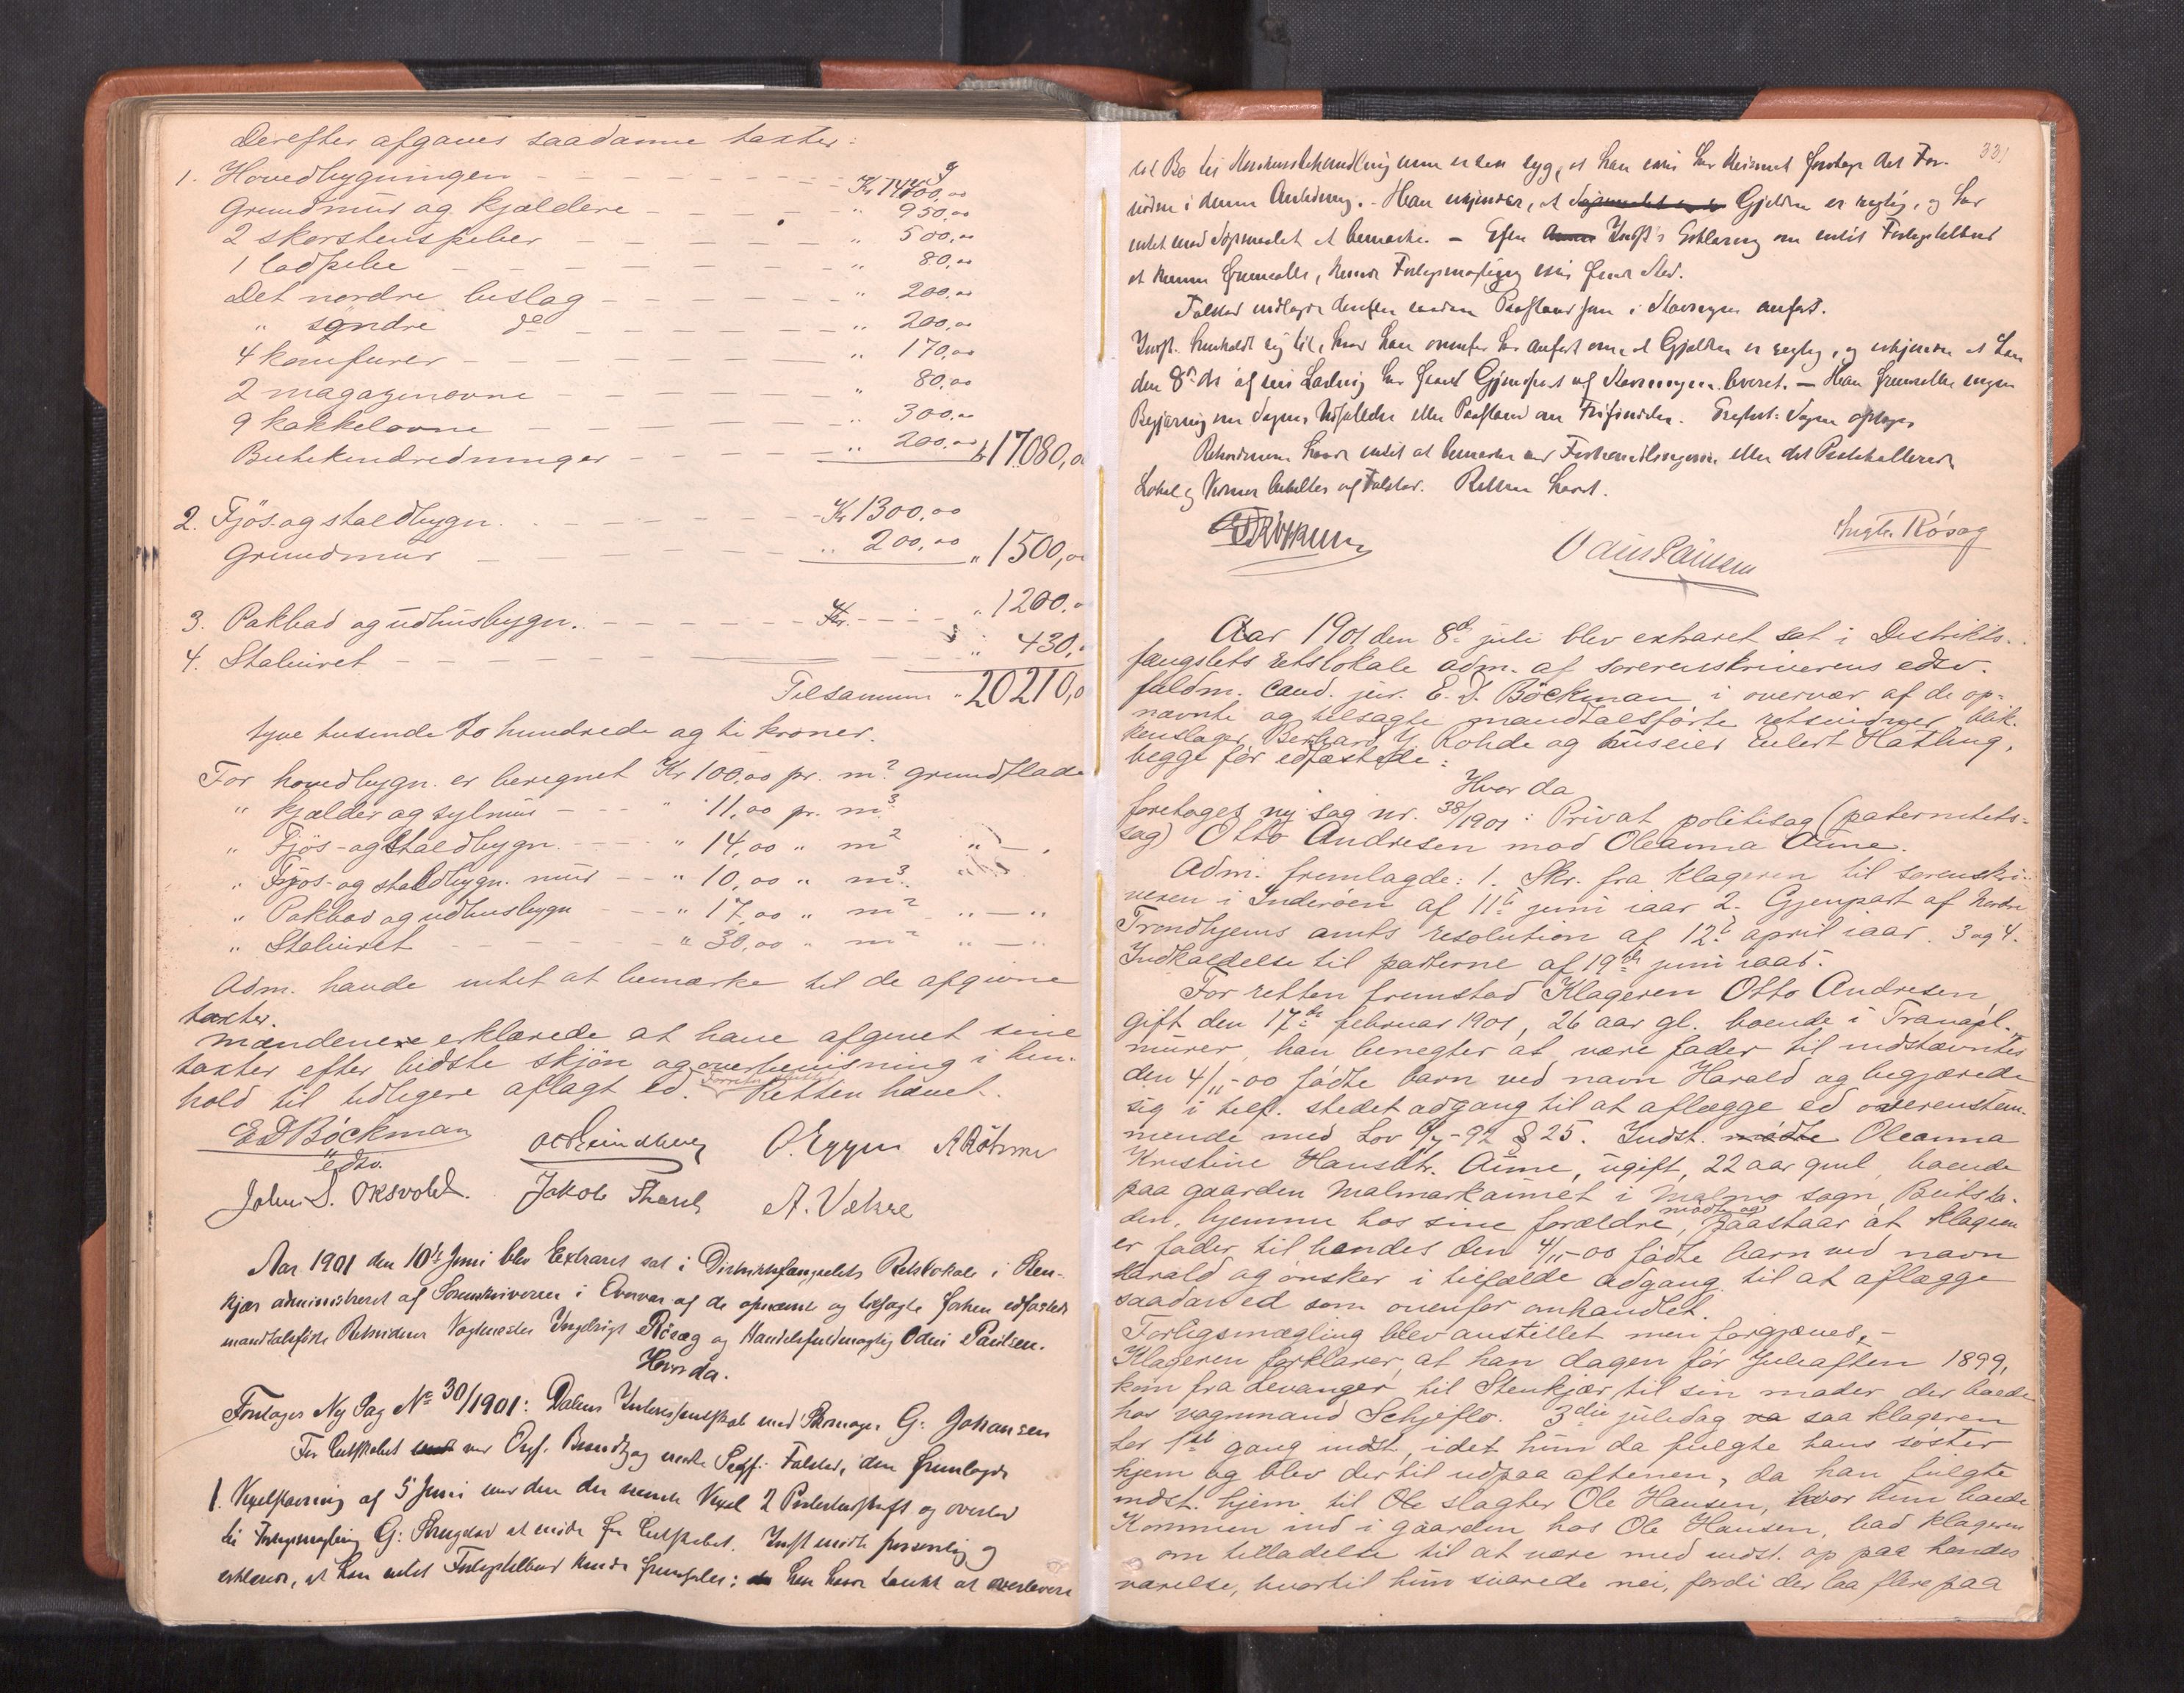 Derefter afgaves saadanne taxter:
1. Hovedbygningen - - - Kr 14400,00
Grundmur og kjældere - - - " 950,00
2 skorstenspiber - - - " 500,00
1 ladpibe - - - " 80,00
Det nordre bislag - - - " 200,00
" søndre do - - - " 200,00
4 komfurer - - - " 170,00
2 magazinovne - - - " 80,00
9 kakkelovne - - - " 300,00
Butikindredninger - - - " 200,00 Kr 17080,00
2. Fjøs- og staldbygn. - - - Kr 1300,00
Grundmur - - - " 200,00 " 1500,00
3. Pakbod og udhusbygn. - - - " 1200,00
4. Staburet - - - " 430,00
Tilsammen " 20210,00
tyve tusende to hundrede og ti kroner.
For hovedbygn. er beregnet Kr 100,00 pr. m2 grundflade
" kjælder og sylmur - - - " 11,00 pr. m3
" Fjös- og staldbygn. - - - " 14,00 " m2 " — "
" Fjös- og staldbygn. mur - - " 10,00 " m3
" Pakbod og udhusbygn - - - " 17,00 " m2 " — "
" Staburet - - - " 30,00 " m2 " — "
Adm. havde intet at bemærke til de afgivne
taxter.
Mændene erklærede at have afgivet sine
taxter efter bedste skjøn og overbevisning i hen-
hold til tidligere aflagt ed. Retten hævet.
E D Böckman O. Eggen A Bötner
edsv.
John S. Oksvold. Jakob A. Vekre
Aar 1901 den 10de Juni blev Extraret sat i Distriktsfængselets Retslokale i Sten-
kjær administreret af Sorenskriveren i Overvær af de opnævnte og tilsagte forhen edfæstede
mandtalsførte Retsvidner Vagtmester Ingebrigt Rösæg og Handelsfuldmægtig Odin Paulsen.
Hvorda.
Foretages Ny Sag No 30/1901: Dalens Interessentskab mod Skomager G: Johansen
For Selskabet var Ovrf. Brandtzæg ved Fuldm: Falstad, der fremlagde
1. Vexelstævning af 5 Juni med den deri nævnte Vexel 2 Protestudskrift og overlod
til Forligsmægling G: Skrugstad at møde for Selskabet. Indst mødte personlig og
erklærede, at han intet Forligstilbud kunde fremsætte; han havde tænkt at overlevere
331
sit Bo til Konkursbehandling men er saa syg, at han ikke har kunnet foretage det For-
nødne i denne Anledning. - Han erkjender, at Gjelden er rigtig, og har
intet mod Søgsmaalet at bemærke. - Efter Indst's Erklæring om intet Forligstilbud
at kunne fremsætte, kunde Forligsmægling ikke finde Sted.
Falstad nedlagde derefter saadan Paastand som i Stævningen anført.
Indst. henholdt sig til, hvad han ovenfor har anført om, at Gjælden er rigtig, og erkjender at han
den 8de ds af sin Lovlig har faaet Gjenpart af Stævningen leveret. - Han fremsatte ingen
Begjæring om Sagens Udsættelse eller Paastand om Frifindelse. Erefert: Sagen optages
Retsvidnerne havde intet at bemærke ved Forhandlingerne eller det Protokollerede
Lokal og Vidner bekostes af Falstad. Retten hævet.
Odin Paulsen Ingbr. Rösæg
Aar 1901 den 8de juli blev extraret sat i Distrikts-
fængslets retslokale adm. af sorenskriverens edsv.
fuldm. cand. jur. E. D. Böckman i overvær af de op-
nævnte og tilsagte mandtalsførte retsvidner, blik-
kenslager Bernhard Y. Rohde og huseier Eilert Hatling,
begge før edfæstede:
Hvor da
foretoges ny sag nr. 38/1901: Privat politisag (paternitets-
sag) Otto Andresen mod Oleanna Aune.
Adm. fremlagde: 1. Skr. fra klageren til sorenskri-
veren i Inderøen af 11te juni iaar 2. Gjenpart af Nordre
Trondhjems amts resolution af 12te april iaar. 3 og 4.
Indkaldelse til parterne af 19de juni iaar.
For retten fremstod Klageren Otto Andresen,
gift den 17de februar 1901, 26 aar gl. boende i Tranapl.,
murer, han benegter at være fader til indstævntes
den 4/11-00 fødte barn ved navn Harald og begjærede
sig i tilf. stedet adgang til at aflægge ed overenstem-
mende med Lov 6/7-92 § 25. Indst. mødte Oleanna
Kristine Hansdtr. Aune, ugift, 22 aar gml, boende
paa gaarden Malmarkaunet i Malmo sogn, Beitsta-
den, hjemme hos sine forældre, mødte og paastaar at klageren
er fader til hendes den 4/11-00 fødte barn ved navn
Harald og ønsker i tilfælde adgang til at aflægge
saadan ed som ovenfor omhandlet.
Forligsmægling blev anstillet men forgjæves. -
Klageren forklarer, at han dagen før Juleaften 1899,
kom fra Levanger til Stenkjær til sin moder der boede
hos vognmand Schjeflo. 3die juledag va saa klageren
her 1ste gang indst., idet hun da fulgte hans søster
hjem og blev der til udpaa aftenen, da han fulgte
indst. hjem til Ole slagter Ole Hansen, hvor hun boede
Kommen ind i gaarden hos Ole Hansen, bad klageren
om tilladelse til at være med indst. op paa hendes
værelse, hvortil hun svarede nei, fordi der laa flere paa